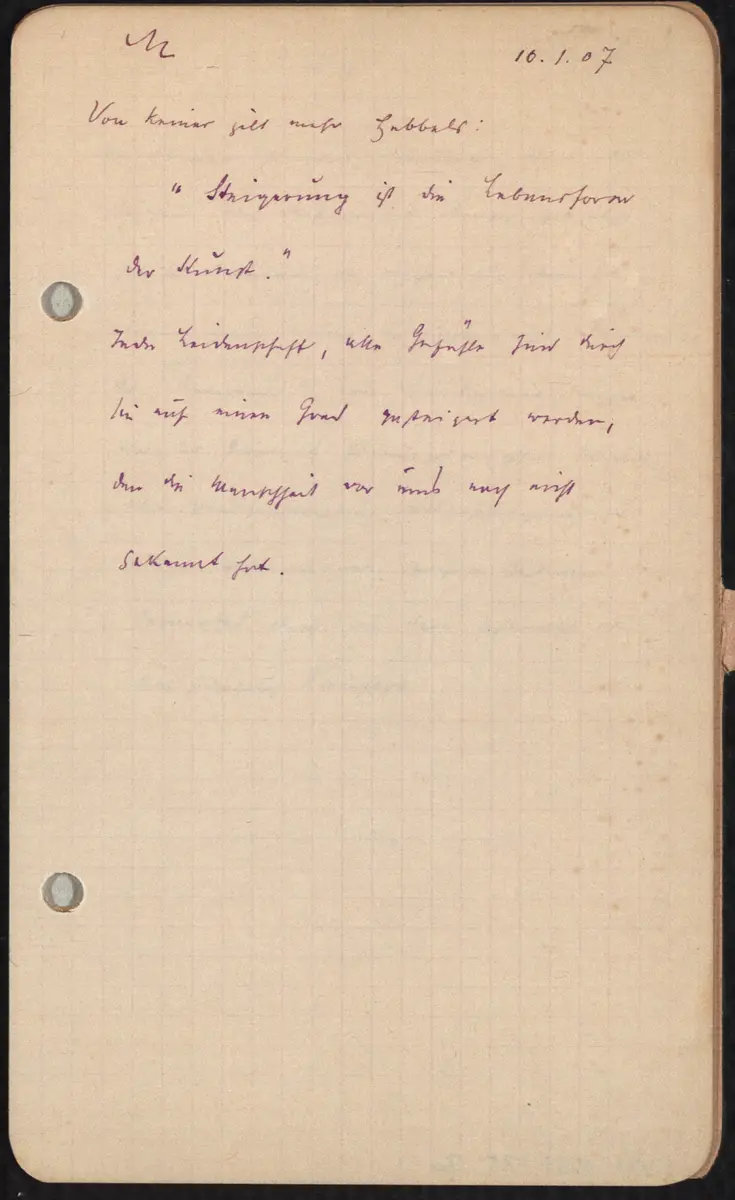 M
10.1.07
Von keiner gilt mehr Hebbels:
" Steigerung ist die Lebensform
der Kunst."
Jede Leidenschaft, alle Gefühle sind durch
sie auf einen Grad gesteigert worden,
den die Menschheit vor uns noch nicht
gekannt hat.